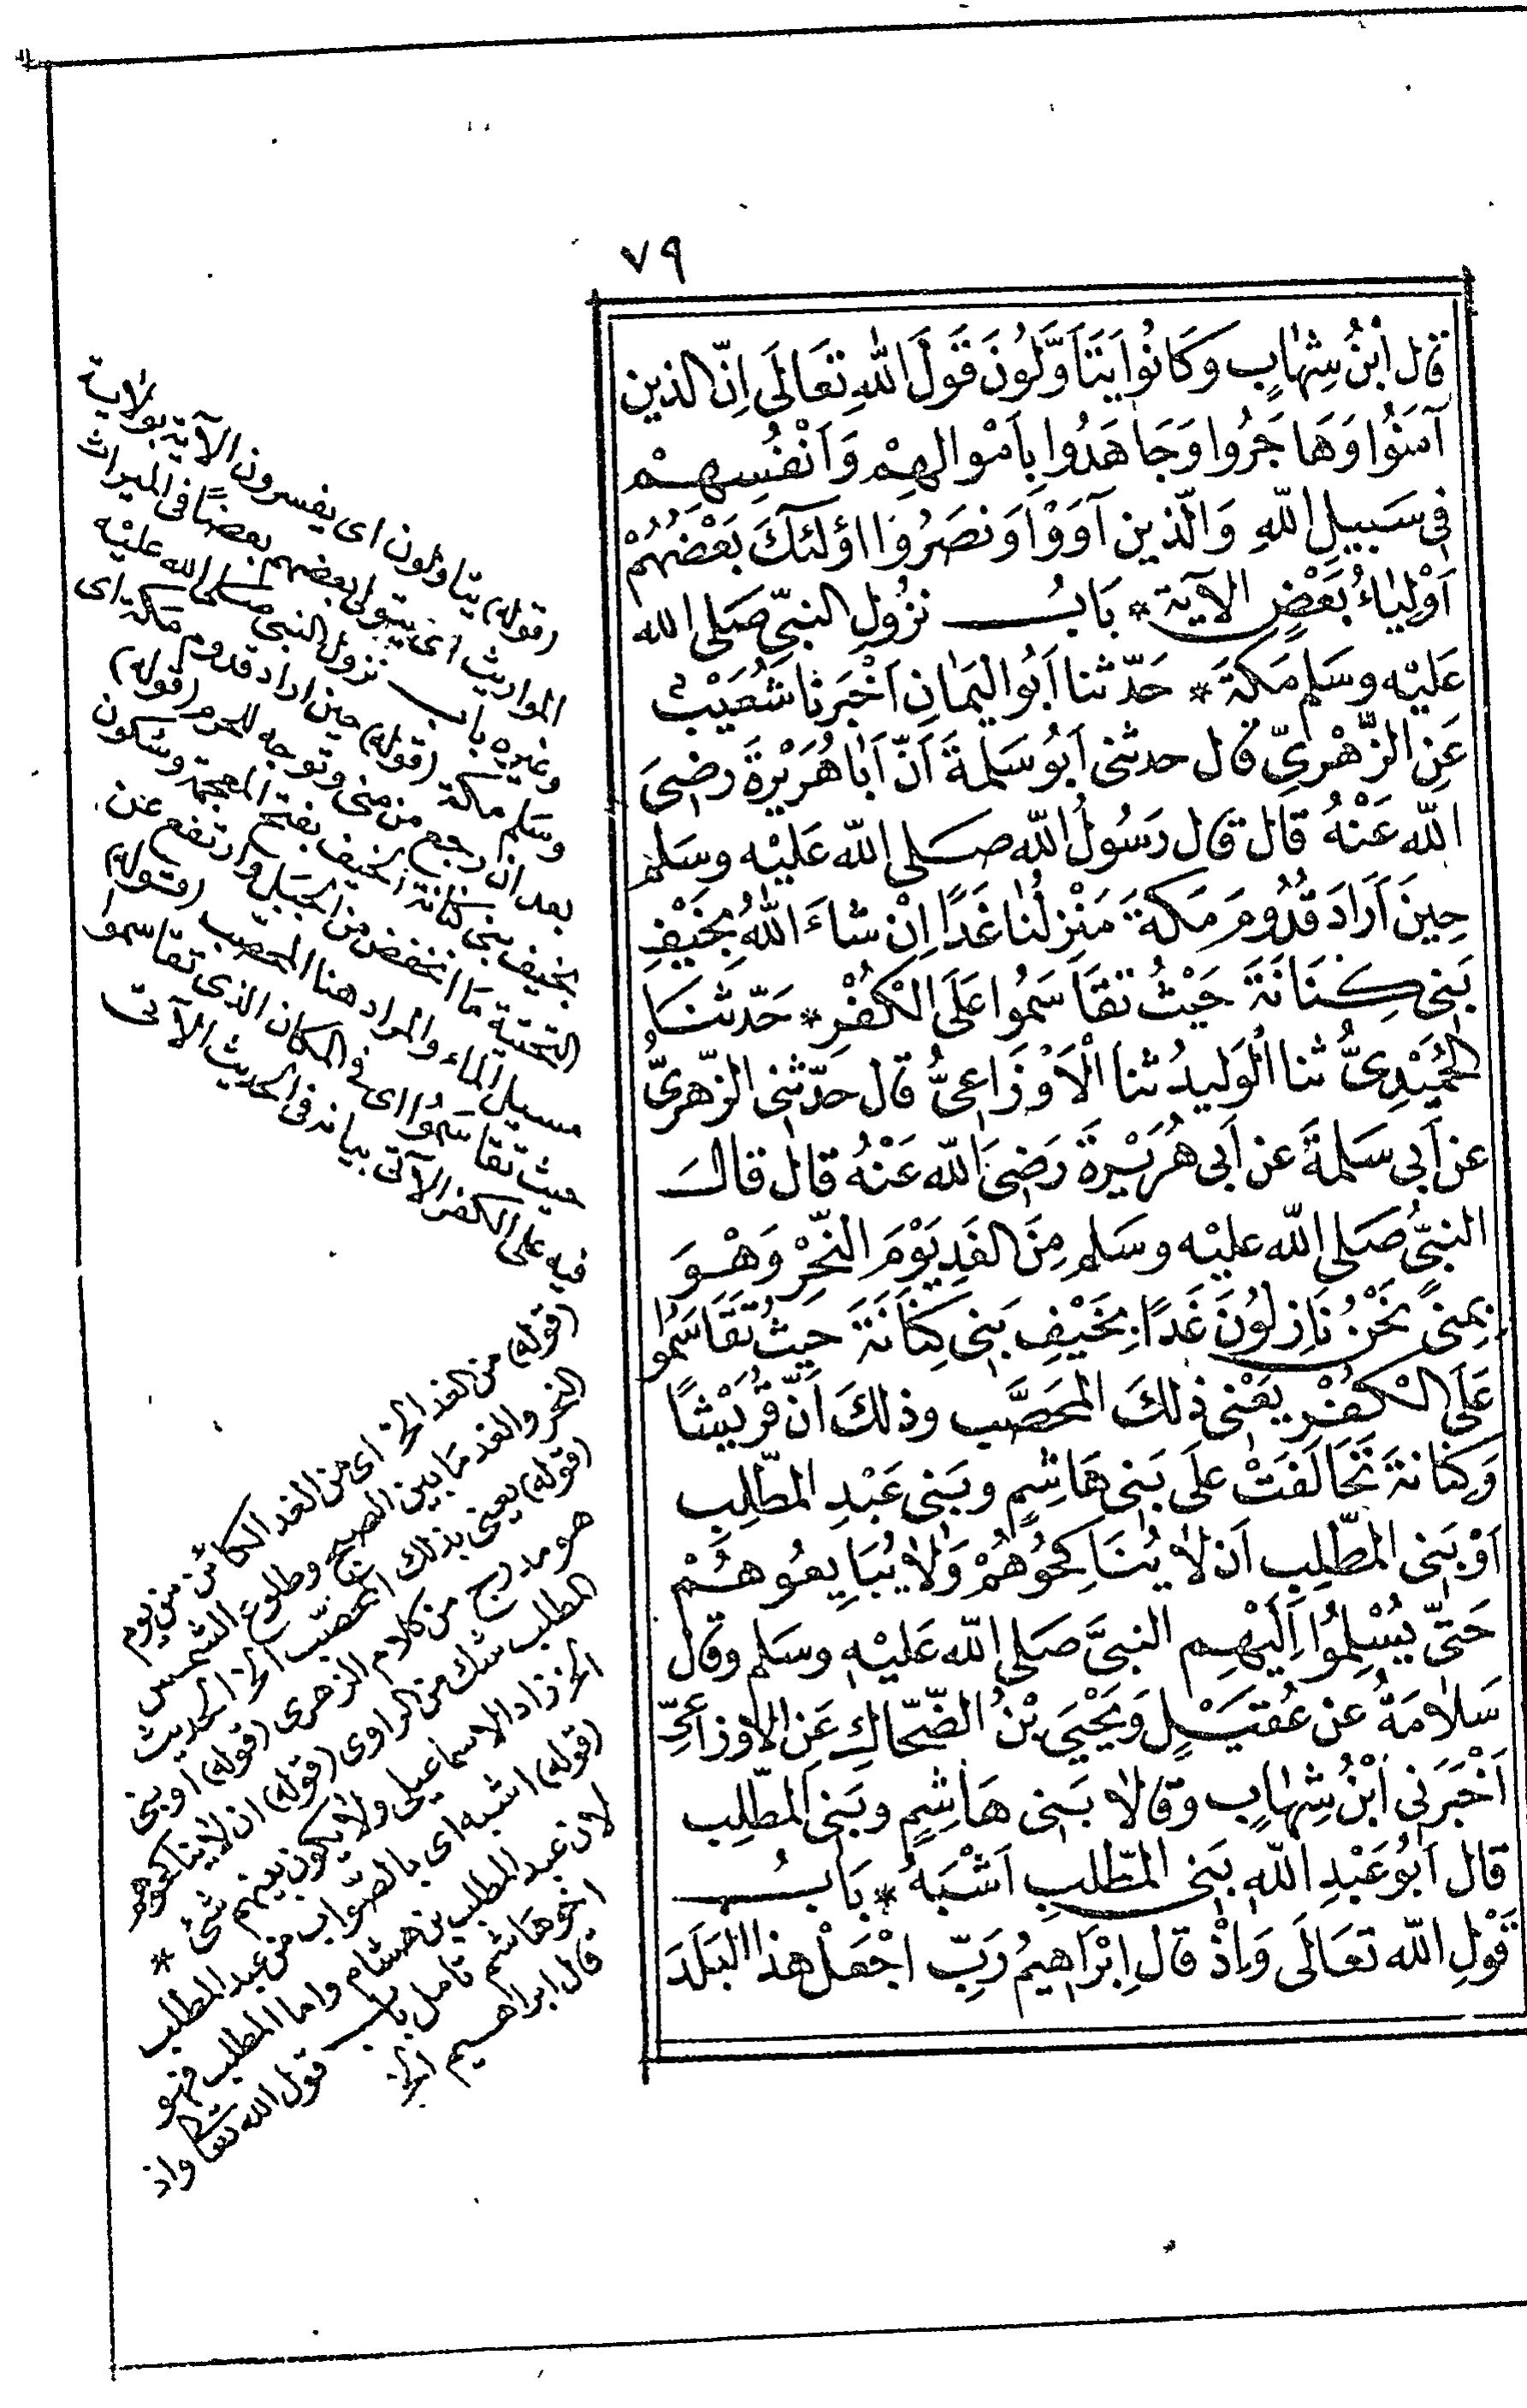 ٧٩
قال ابْنُ شِهَابٍ وَكَانُوا يَتَأَوَّلُونَ قَوْلَ اللهِ تَعَالَى اِنَّ الذين
آمَنُوا وَهَاجَرُوا وَجَاهَدُوا بِاَمْوَالِهِمْ وَاَنْفُسِهِمْ
فِي سَبِيلِ اللهِ وَالَّذِين آوَوْا وَنَصَرُوا اؤلَئكَ بَعْضُهُمْ
اَوْلِيَاءُ بَعْضٍ الآيَةَ * بَابُ نُزُولِ النَبِيِّ صَلى الله
عَلَيْه وسَلم مَكةَ * حَدّثنا اَبُو اليَمَانِ اَخْبَرنا شُعَيْبٌ
عَنِ الزُّهْرِيِّ قال حدثنى اَبُو سَلمةَ اَنَّ اَبَا هُرَيْرةَ رضِيَ
اللّه عَنْهُ قال قال رَسُولُ اللّه صَلى اللّه عَلَيْه وسَلم
حِينَ اَرَادَ قُدُومَ مَكةَ مَنْزِلُنا غَدًا اِنْ شاءَ اللّهُ بِخَيْفِ
بَنِى كِنَانَةَ حَيْثُ تَقَاسَمُوا عَلَى الْكُفْرِ * حَدّثنَا
الْحُمَيْدِىُّ ثنا الْوَلِيدُ ثنا الْاَوْزَاعِىُّ قال حَدّثنِى الزّهرِىُّ
عن اَبِى سَلمةَ عن اَبِى هُرَيْرةَ رَضِىَ اللّه عَنْهُ قال قالَ
النبِىُّ صَلى اللّه عليْه وسَلم مِنَ الغَدِ يَوْمَ النَّحْرِ وَهْوَ
بِمِنًى نَحْنُ نَازِلُونَ غَدًا بِخَيْفِ بَنِى كِنَانَةَ حَيْثُ تَقَاسَمُوا
عَلَى الْكُفْرِ يَعْنِى ذلكَ المُحَصَّب وذلكَ اَنَّ قُرَيْشًا
وَكِنَانةَ تَحَالَفَتْ عَلَى بَنِى هَاشِمٍ وبَنِى عَبْدِ المطّلِبِ
اَوْ بَنِى المطّلِبِ اَن لا يُنَاكِحُوهُمْ وَلا يُبَايِعُوهُمْ
حَتىّ يُسْلِمُوا اِلَيْهِم النبىَّ صَلى اللّه عَلَيْه وسَلم وقال
سَلامَةُ عن عُقَيْلٍ وَيَحْيَى بْنُ الضَّحَّاكِ عَنِ الاوزاعِىِّ
اَخْبَرَنِى ابْنُ شِهَابٍ وقَالا بَنِى هَاشِمٍ وبَنِى المطّلِب
قال اَبُو عَبْدِ اللّه بَنِى المطّلبِ اَشْبَهُ * بَابُ
قَوْلِ اللّه تعَالَى وَاِذْ قال اِبْرَاهِيمُ رَبِّ اجْعَلْ هذا البَلَدَ
(قوله) يتاولون اى يفسرون الآية بولاية
المواريث اى يتولى بعضهم بعضًا فى الميراث
وغيره باب نزول النبى صلى الله عليْه
وسلم مكة (قوله) حين اراد قدوم مكة اى
بعد ان رجع من منى وتوجه للحرم (قوله)
بخيف بنى كنانة الخيف بفتح المعجمة وسكون
التحتية مَا انخفض من الجبَل وارتفع عن
مسيل الماء والمراد هنا المحصّب (قوله)
حيث تقاسَمُوا اى فى المكان الذى تقاسموا
فيه على الكفر الآتى بيانه فى الحديث الآتى
(قوله) من الغد الخ اى من الغد الكائن من يوم
النحر والغد مَا بين الصبح وطلوع الشمس
(قوله) يعنى بذلك المحصّب الخ الحديث
هو مدرج من كلام الزهرى (قوله) او بنى
المطلب شك من الراوى (قوله) ان لا يناكحوهم
الخ زاد الاسماعيلى ولا يكون بينهم شئ *
(قوله) اشبه اى بالصّواب من عبد المطلب
لان عبد المطلب بن هشام واما المطلب فهو
اخو هاشم تامل باب قول الله تعالى واذ
قال ابراهيم الخ